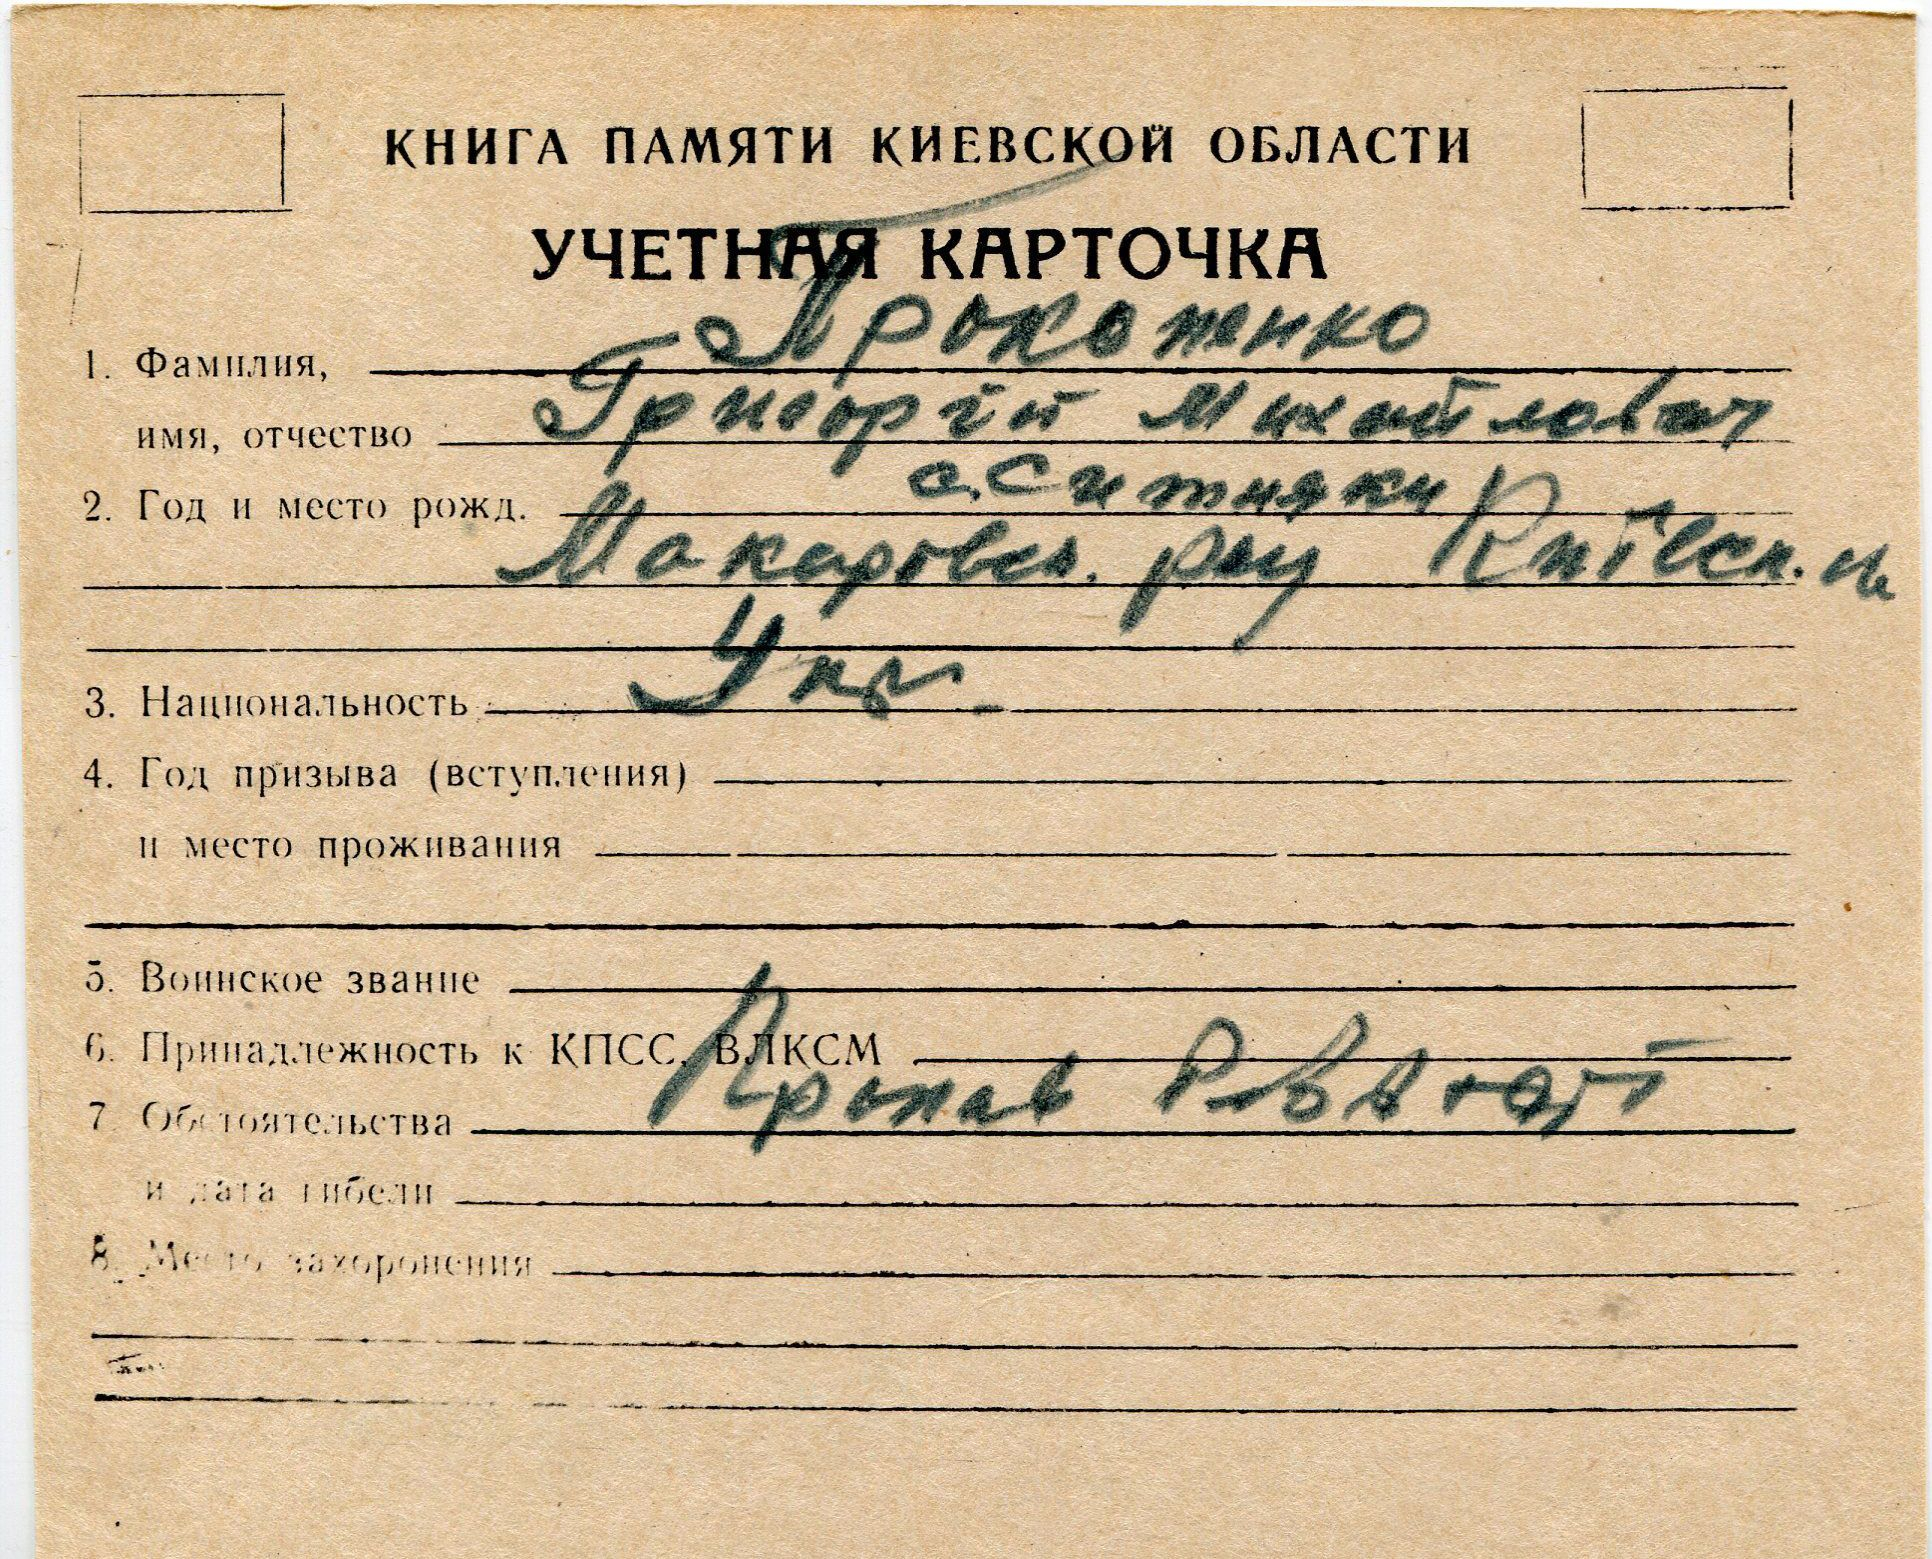 КНИГА ПАМЯТИ КИЕВСКОЙ ОБЛАСТИ
УЧЕТНАЯ КАРТОЧКА
1. Фамилия, Прокопенко
имя, отчество Григорій Михайлович
2. Год и место рожд. с. Ситняки
Макаровск. р-ну Київськ.
3. Национальность Укр.
4. Год призыва (вступления)
и место проживания
5. Воинское звание
6. Принадлежность к КПСС, ВЛКСМ
7. Обстоятельства Пропав
и дата гибели
8. Место захоронения